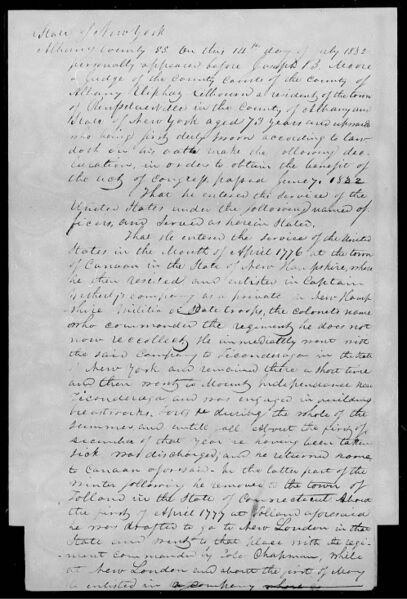 State of New York
Albany County SS On this 14th day of July 1832
personally appeared before Joseph B. Moore
a judge of the County Courts of the County of
Albany Eliphaz a resident of the town
of Rensselaer in the County of Albany and
State of New York aged 73 years and upwards
who being first duly sworn according to law
doth on his oath make the following dec
laration, in order to obtain the benefit of
the act of Congress passed June 7. 1832
That he entered the service of the
United States under the following named of
ficers, and served as herein stated,
That he entered the service of the United
States in the Month of April 1776 at the town
of Canaan in the State of New Hampshire, where
he then resided and enlisted in Captain
company as a private in New Hamp
shire Militia or State troops, the colonels name
who commanded the regiment he does not
now recollect He immediately went with
the said Company to Ticonderoga in the State
of New York and remained there a short time
and then went to Mount Independence near
Ticonderoga and was engaged in building
breastworks, forts &c during the whole of the
summer and until fall About the first of
December of that year he having been taken
sick was discharged and he returned home
to Canaan aforesaid. In the latter part of the
winter following he removed to the town of
Tolland in the State of Connecticut About
the first of April 1777 at Tolland aforesaid
he was drafted to go to New London in that
State and went to that place with the regi
ment commanded by Colo Chapman, while
at New London and about the first of May
he enlisted in a company